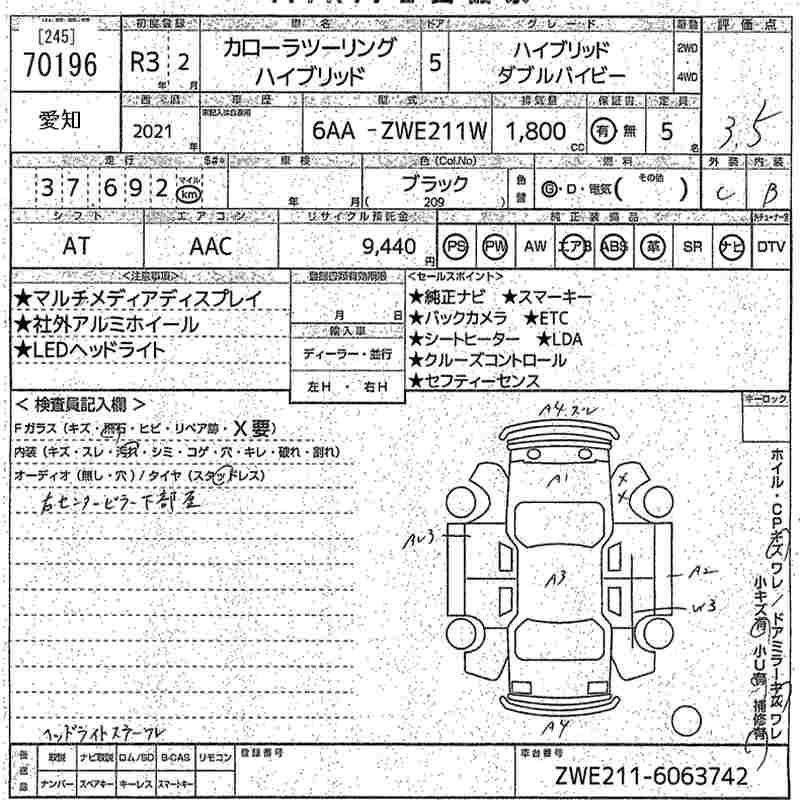 [245]
70196
初度登録
R3 2
年 月
車名
カローラツーリング
ハイブリッド
ドア
5
グレード
ハイブリッド
ダブルバイビー
駆動
2WD
4WD
評価点
3.5
愛知
西暦
2021
年
車歴
型式
6AA -ZWE211W
排気量
1,800
CC
保証書
有 無
定員
5
名
走行
37692
マイル
km
車検
年 月
色(Col.No)
ブラック
( 209 )
色替
燃料
G・D・電気( その他 )
外装
C
内装
B
シフト
AT
エアコン
AAC
リサイクル預託金
9,440
円
純正装備品
PS PW AW エアB ABS 革 SR ナビ DTV
<注意事項>
★マルチメディアディスプレイ
★社外アルミホイール
★LEDヘッドライト
登録書類有効期限
月 日
輸入車
ディーラー・並行
左H ・ 右H
<セールスポイント>
★純正ナビ ★スマーキー
★バックカメラ ★ETC
★シートヒーター ★LDA
★クルーズコントロール
★セフティーセンス
キーロック
< 検査員記入欄 >
Fガラス(キズ・飛石・ヒビ・リペア跡・X要)
内装(キズ・スレ・汚れ・シミ・コゲ・穴・キレ・破れ・割れ)
オーディオ(無し・穴)/タイヤ(スタッドレス)
右センターピラー下部歪
ヘッドライトステーワレ
A4.スレ
A1
X
X
AU3
A3
A2
W3
A4
ホイル・CPキズワレ/ドアミラーキズワレ
小キズ有 小U有 補修有
取説 ナビ取説 ロム/SD B-CAS リモコン
ナンバー スペアキー キーレス スマートキー
登録番号
車台番号
ZWE211-6063742